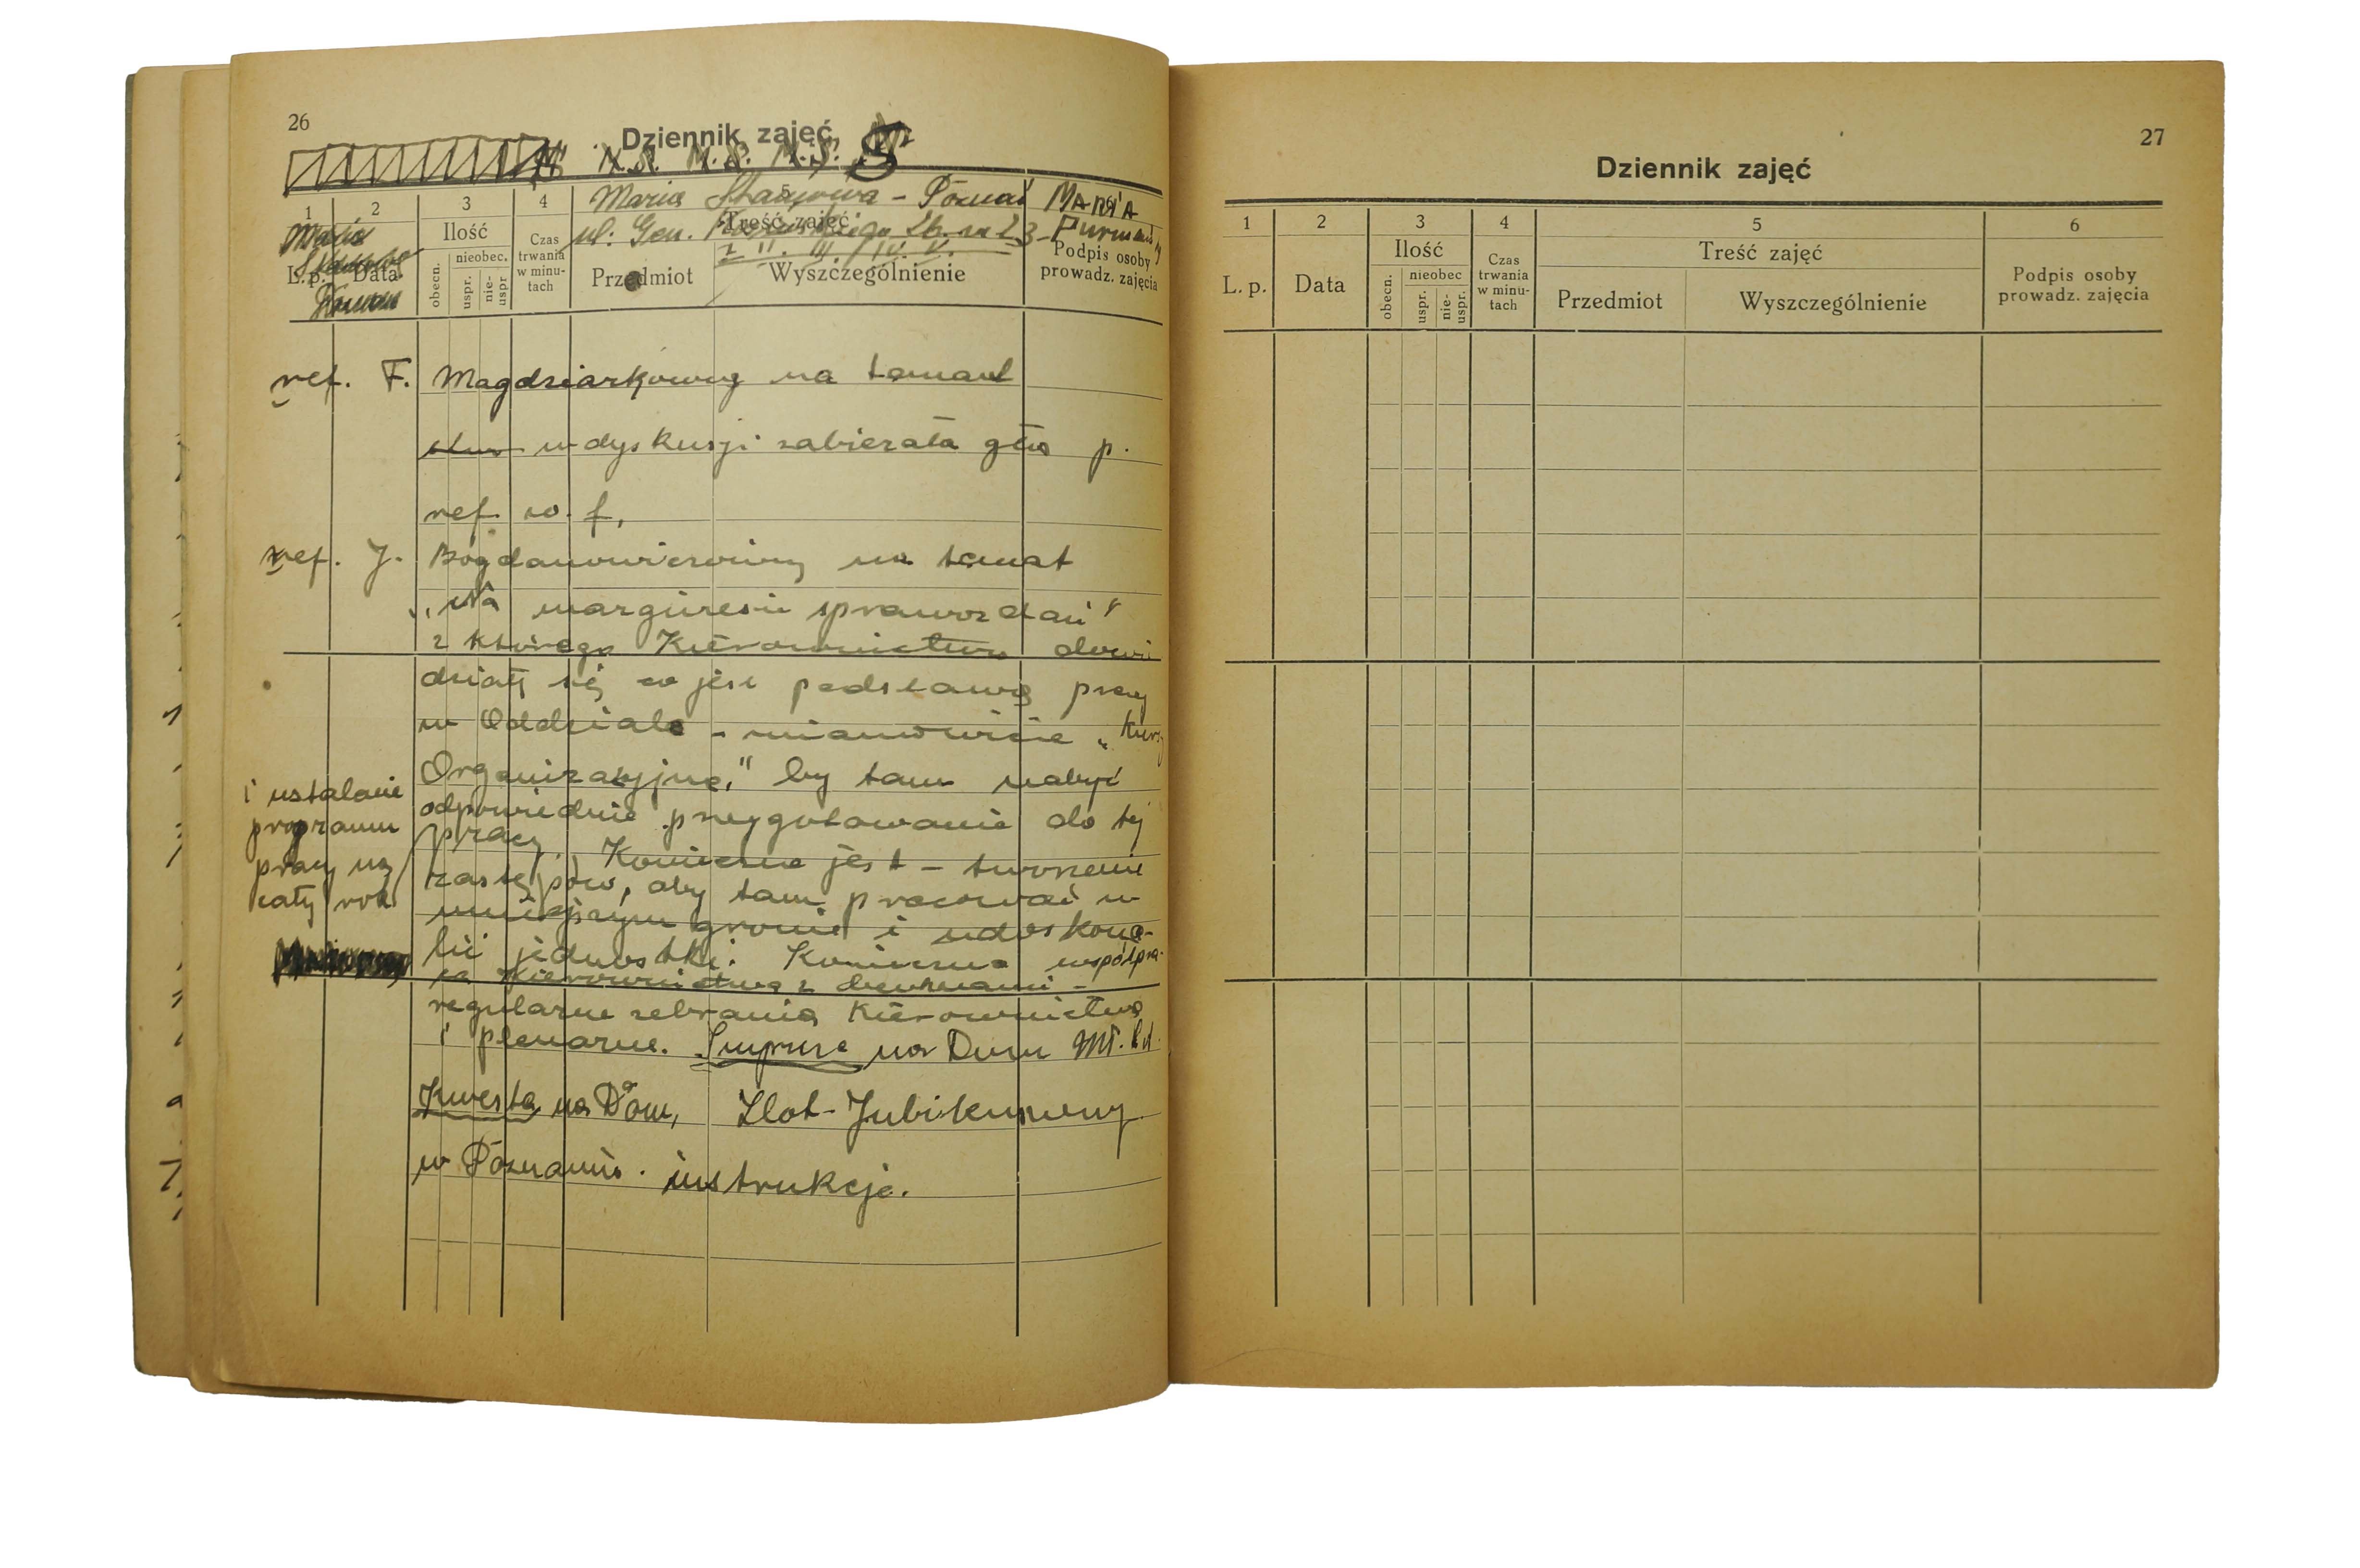 26
Dziennik zajęć
M. S. M. S.
Maria – Poznań MARIA
ul. Gen. 26. m 23
z II. III. IV. V.
1 2 3 4 5 6
L. p. Data Ilość obecn. nieobec. uspr. nie-uspr. Czas trwania w minu-tach Treść zajęć Przedmiot Wyszczególnienie Podpis osoby prowadz. zajęcia
ref. F. Magdziarkówny na temat
w dyskusji zabierała głos p.
ref. w. f.
ref. J. Bogdanowiczówny na temat
„Na marginesie sprawozdań"
z którego Kierownictwo dowie
działy się co jest podstawą pracy
w Oddziale – mianowicie „Kursy
Organizacyjne," by tam nabyć
odpowiednie przygotowanie do tej
pracy. Konieczne jest – tworzenie
zastępów, aby tam pracować w
mniejszym gronie i udoskona-
lić jednostki. Konieczna współpra-
ca Kierownictwa z druhnami –
regularne zebrania Kierownictwa
i plenarne. Imprezę na Dom Mł. Pol.
Kwesta na Dom, Zlot-Jubileuszowy
w Poznaniu. instrukcje.
i ustalenie
programu
pracy na
cały rok
27
Dziennik zajęć
1 2 3 4 5 6
L. p. Data Ilość obecn. nieobec uspr. nie-uspr. Czas trwania w minu-tach Treść zajęć Przedmiot Wyszczególnienie Podpis osoby prowadz. zajęcia